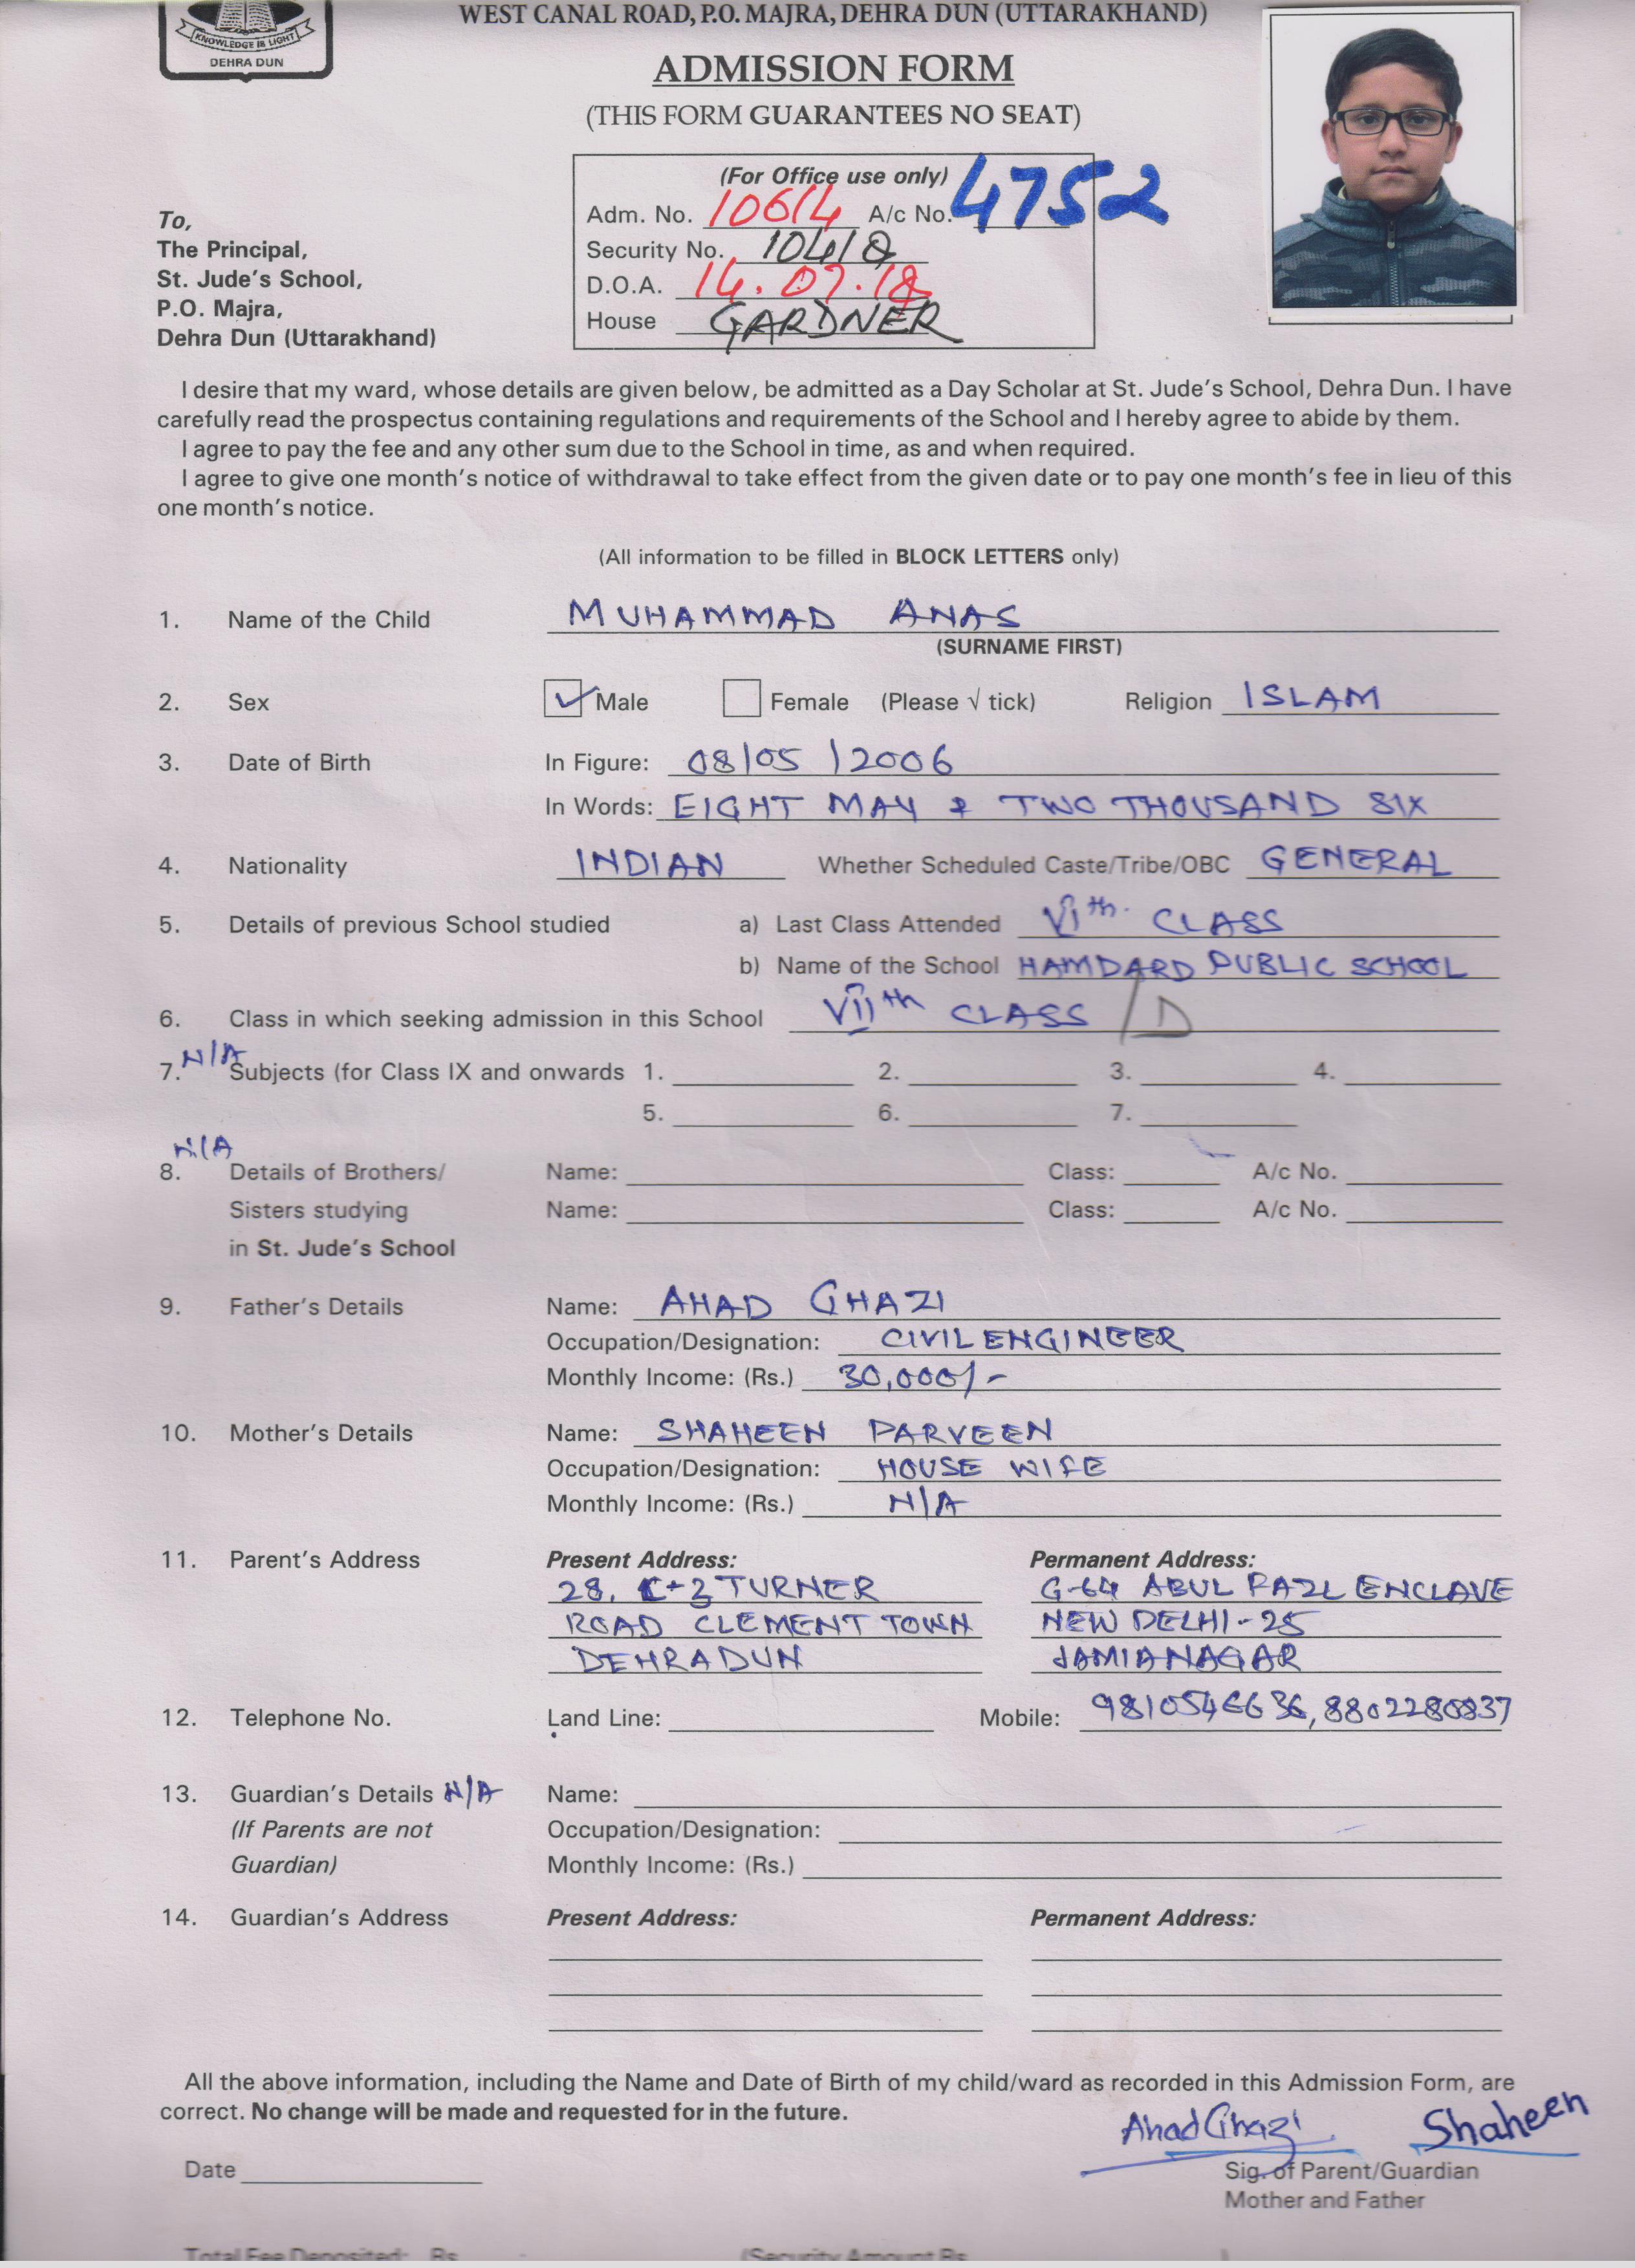 KNOWLEDGE IS LIGHT
DEHRA DUN
WEST CANAL ROAD, P.O. MAJRA, DEHRA DUN (UTTARAKHAND)
ADMISSION FORM
(THIS FORM GUARANTEES NO SEAT)
(For Office use only)
Adm. No. 10614 A/c No. 4752
Security No. 10418
D.O.A. 14.07.18
House GARDNER
To,
The Principal,
St. Jude's School,
P.O. Majra,
Dehra Dun (Uttarakhand)
I desire that my ward, whose details are given below, be admitted as a Day Scholar at St. Jude's School, Dehra Dun. I have
carefully read the prospectus containing regulations and requirements of the School and I hereby agree to abide by them.
I agree to pay the fee and any other sum due to the School in time, as and when required.
I agree to give one month's notice of withdrawal to take effect from the given date or to pay one month's fee in lieu of this
one month's notice.
(All information to be filled in BLOCK LETTERS only)
1. Name of the Child MUHAMMAD ANAS
(SURNAME FIRST)
2. Sex ✓ Male Female (Please √ tick) Religion ISLAM
3. Date of Birth In Figure: 08/05/2006
In Words: EIGHT MAY & TWO THOUSAND SIX
4. Nationality INDIAN Whether Scheduled Caste/Tribe/OBC GENERAL
5. Details of previous School studied a) Last Class Attended VIth. CLASS
b) Name of the School HAMDARD PUBLIC SCHOOL
6. Class in which seeking admission in this School VIIth CLASS /D
7. N/A Subjects (for Class IX and onwards 1. 2. 3. 4.
5. 6. 7.
N/A
8. Details of Brothers/ Name: Class: A/c No.
Sisters studying Name: Class: A/c No.
in St. Jude's School
9. Father's Details Name: AHAD GHAZI
Occupation/Designation: CIVIL ENGINEER
Monthly Income: (Rs.) 30,000/-
10. Mother's Details Name: SHAHEEN PARVEEN
Occupation/Designation: HOUSE WIFE
Monthly Income: (Rs.) N/A
11. Parent's Address Present Address: Permanent Address:
28, TURNER G-64 ABUL FAZL ENCLAVE
ROAD CLEMENT TOWN NEW DELHI-25
DEHRADUN JAMIA NAGAR
12. Telephone No. Land Line: Mobile: 9810546636, 8802280837
13. Guardian's Details N/A Name:
(If Parents are not Occupation/Designation:
Guardian) Monthly Income: (Rs.)
14. Guardian's Address Present Address: Permanent Address:
All the above information, including the Name and Date of Birth of my child/ward as recorded in this Admission Form, are
correct. No change will be made and requested for in the future.
Ahad Ghazi Shaheen
Date Sig. of Parent/Guardian
Mother and Father
Total Fee Deposited: Rs. (Security Amount Rs. )